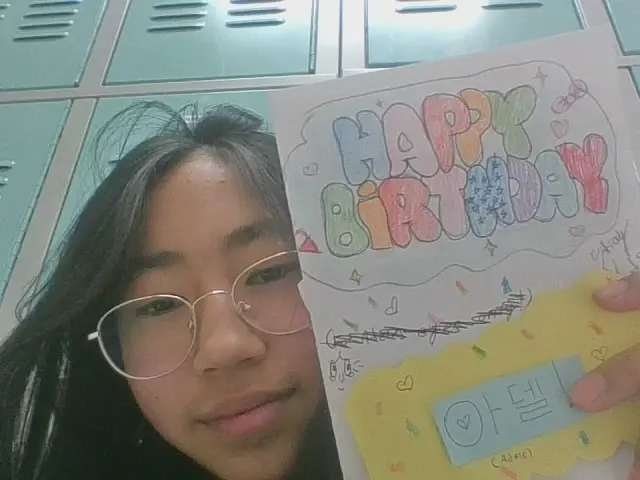 HAPPY
BIRTHDAY
아델
(Adele)